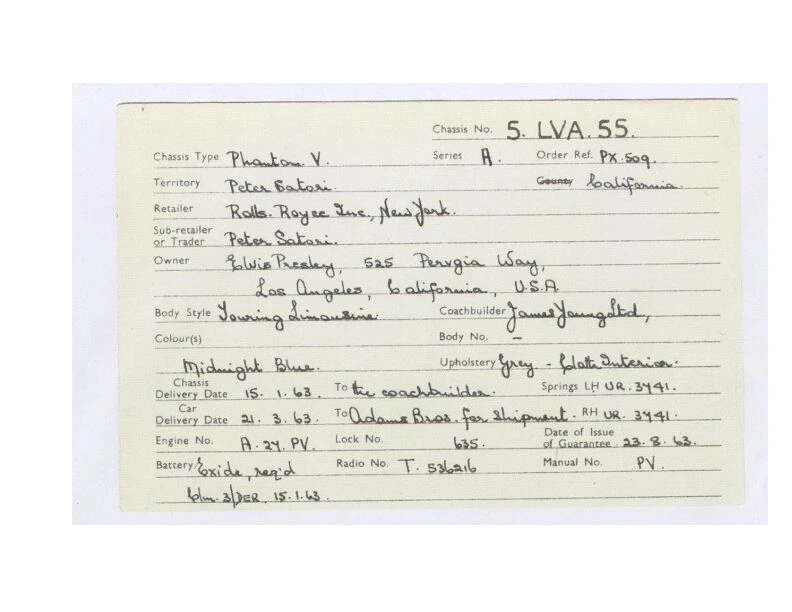 Chassis No. 5. LVA. 55.
Chassis Type Phantom V. Series A. Order Ref. PX.509.
Territory Peter Satori. County California.
Retailer Rolls. Royce Inc., New York.
Sub-retailer
or Trader Peter Satori.
Owner Elvis Presley, 525 Perugia Way,
Los Angeles, California, U.S.A.
Body Style Touring Limousine. Coachbuilder James Young Ltd,
Colour(s) Body No. –
Midnight Blue. Upholstery Grey - Cloth Interior.
Chassis
Delivery Date 15. 1. 63. To the coachbuilder. Springs LH UR. 3741.
Car
Delivery Date 21. 3. 63. To Adams Bros. for shipment. RH UR. 3741.
Engine No. A. 27. PV. Lock No. 635. Date of Issue
of Guarantee 23. 8. 63.
Battery Exide, req'd Radio No. T. 536216 Manual No. PV.
3/DER. 15.1.63.